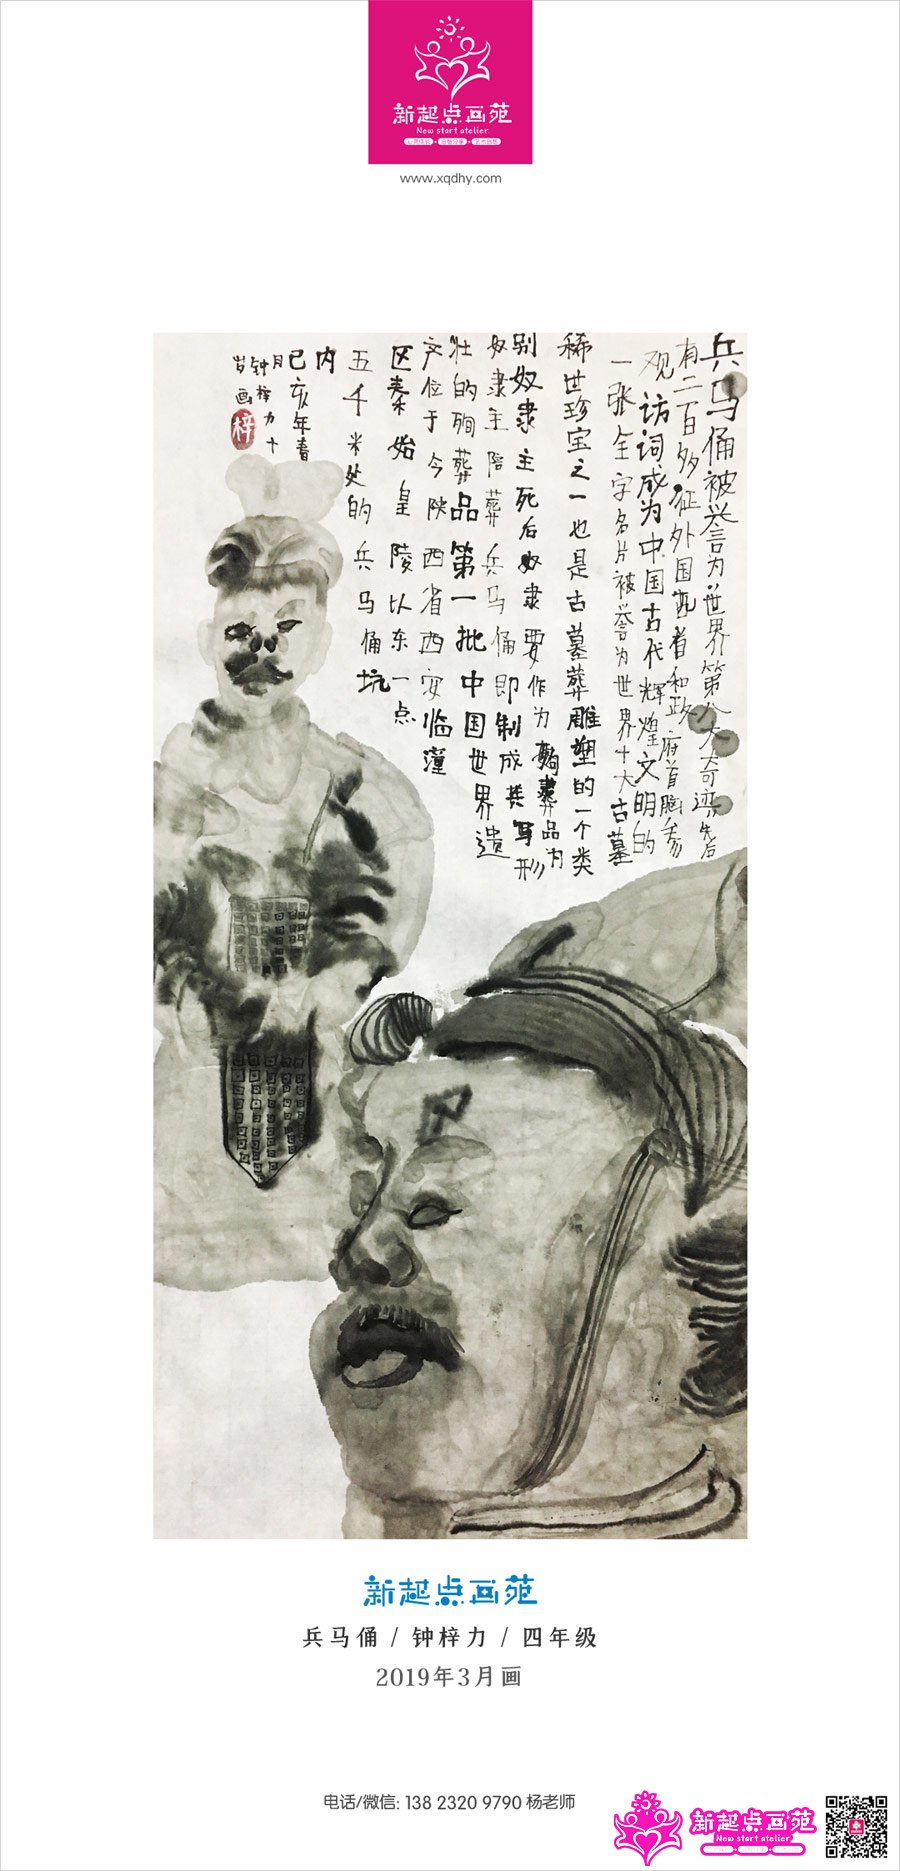 新起点画苑
New start atelier
www.xqdhy.com
兵马俑被誉为世界第八大奇迹先后
有二百多位外国首和政府首脑参
观访词成为中国古代辉煌文明的
一张金字名片被誉为世界十大古墓
稀世珍宝之一也是古墓葬雕塑的一个类
别奴隶主死后奴隶要作为殉葬品为
奴隶主陪葬兵马俑即制成兵马形
壮的殉葬品第一批中国世界遗
产位于今陕西省西安临潼
区秦始皇陵以东一点
五千米处的兵马俑坑
内
己亥年春
月
钟梓力十
岁画
梓
新起点画苑
兵马俑 / 钟梓力 / 四年级
2019年3月画
电话/微信: 138 2320 9790 杨老师
新起点画苑
New start atelier